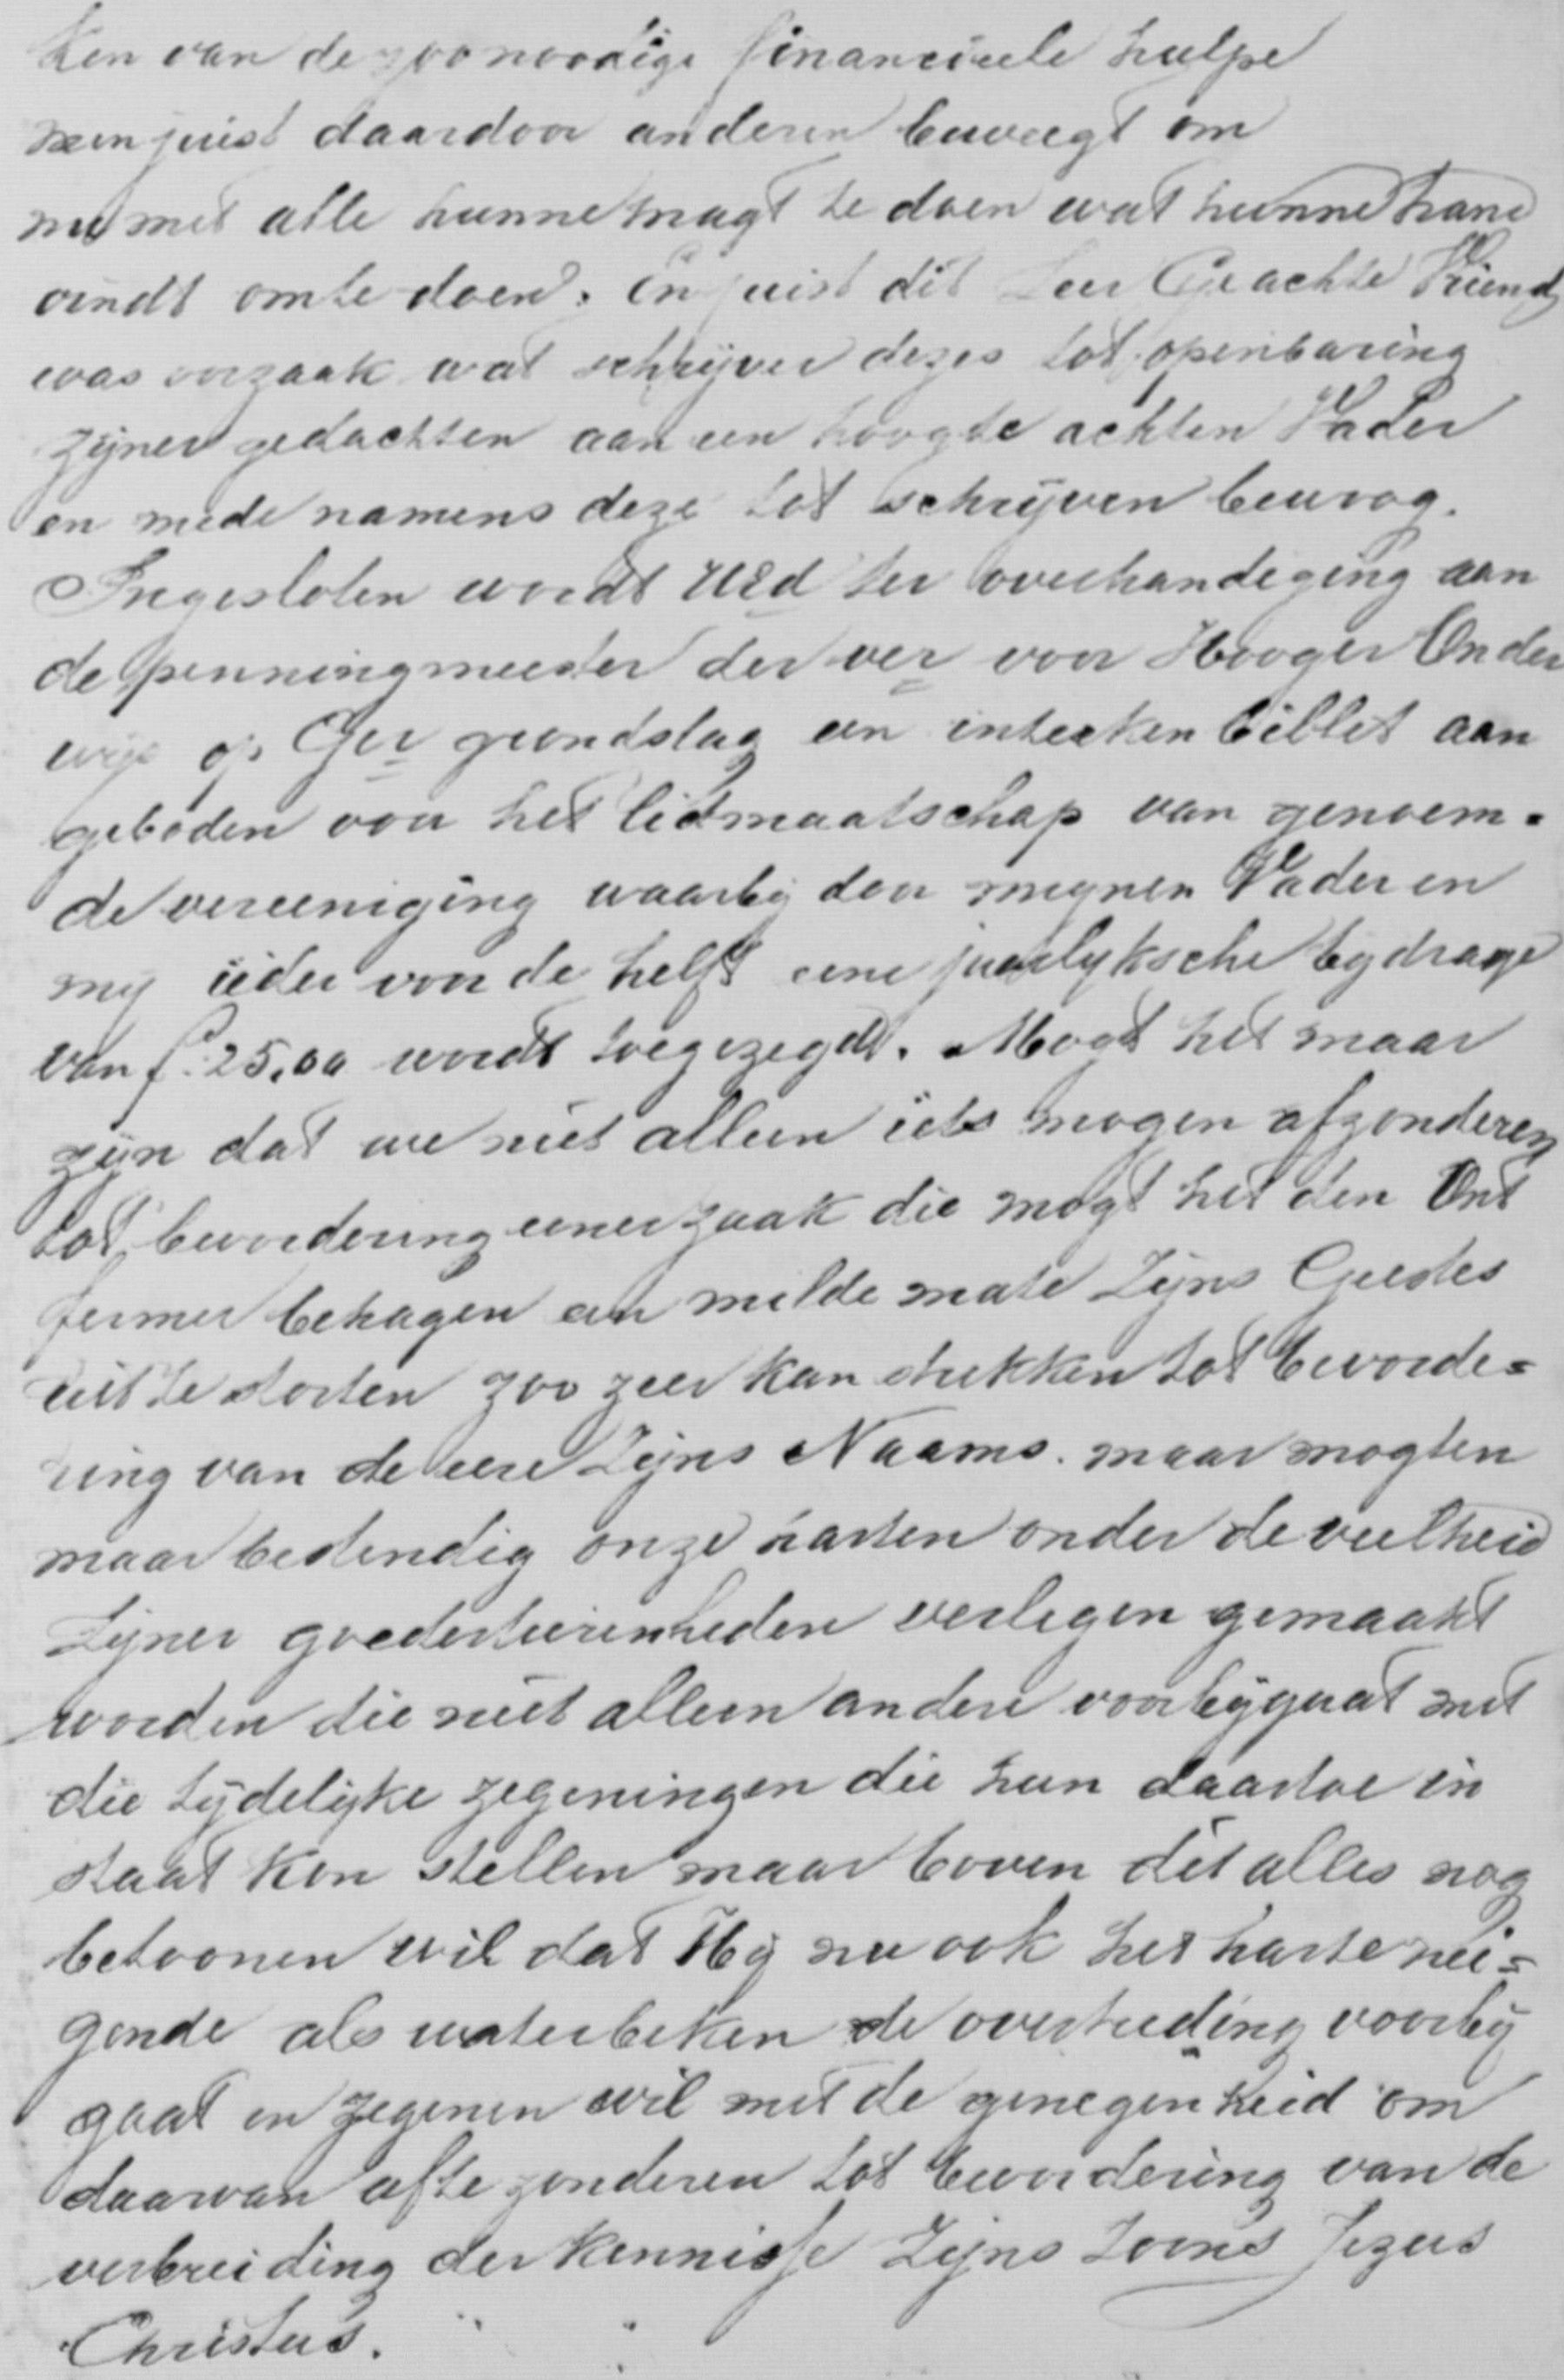 ken van de zoonoodige financieele hulpe
men juist daardoor anderen beweegt om
nu met alle hunne magt te doen wat hunne hand
vindt om te doen. En juist dit Zeer Geachte Vriend
was oorzaak wat schrijver dezes tot openbaring
zijner gedachten aan een hoogte achten Vader
en mede namens deze tot schrijven bewoog.
Ingesloten wordt UEd ter overhandiging aan
de penningmeester der ver voor Hooger Onder
wijs op Ger grondslag een inteeken billet aan
geboden voor het lidmaatschap van genoem-
de vereeniging waarbij door mynen Vader en
my ieder voor de helft eene jaarlyksche bydrage
van f 25,00 wordt toegezegd. Mogt het maar
zijn dat we niet alleen iets mogen afzonderen
tot bevordering eener zaak die mogt het den Ont
fermer behagen een milde mate Zijns Geestes
uit te storten zoo zeer kan strekken tot bevorde=
ring van de eere Zijns Naams. maar mogten
maar bestendig onze harten onder de veelheid
Zijner goedertierenheden verlegen gemaakt
worden die niet alleen andere voorbijgaat met
die tijdelijke zegeningen die hen daartoe in
staat kon stellen maar boven dit alles nog
betoonen wil dat Hij nu ook het harte nei=
gende als waterbeken de overtreding voorbij
gaat en zegenen wil met de genegenheid om
daarvan afte zonderen tot bevordering van de
verbreiding der kennisse Zijns Zoons Jezus
Christus.